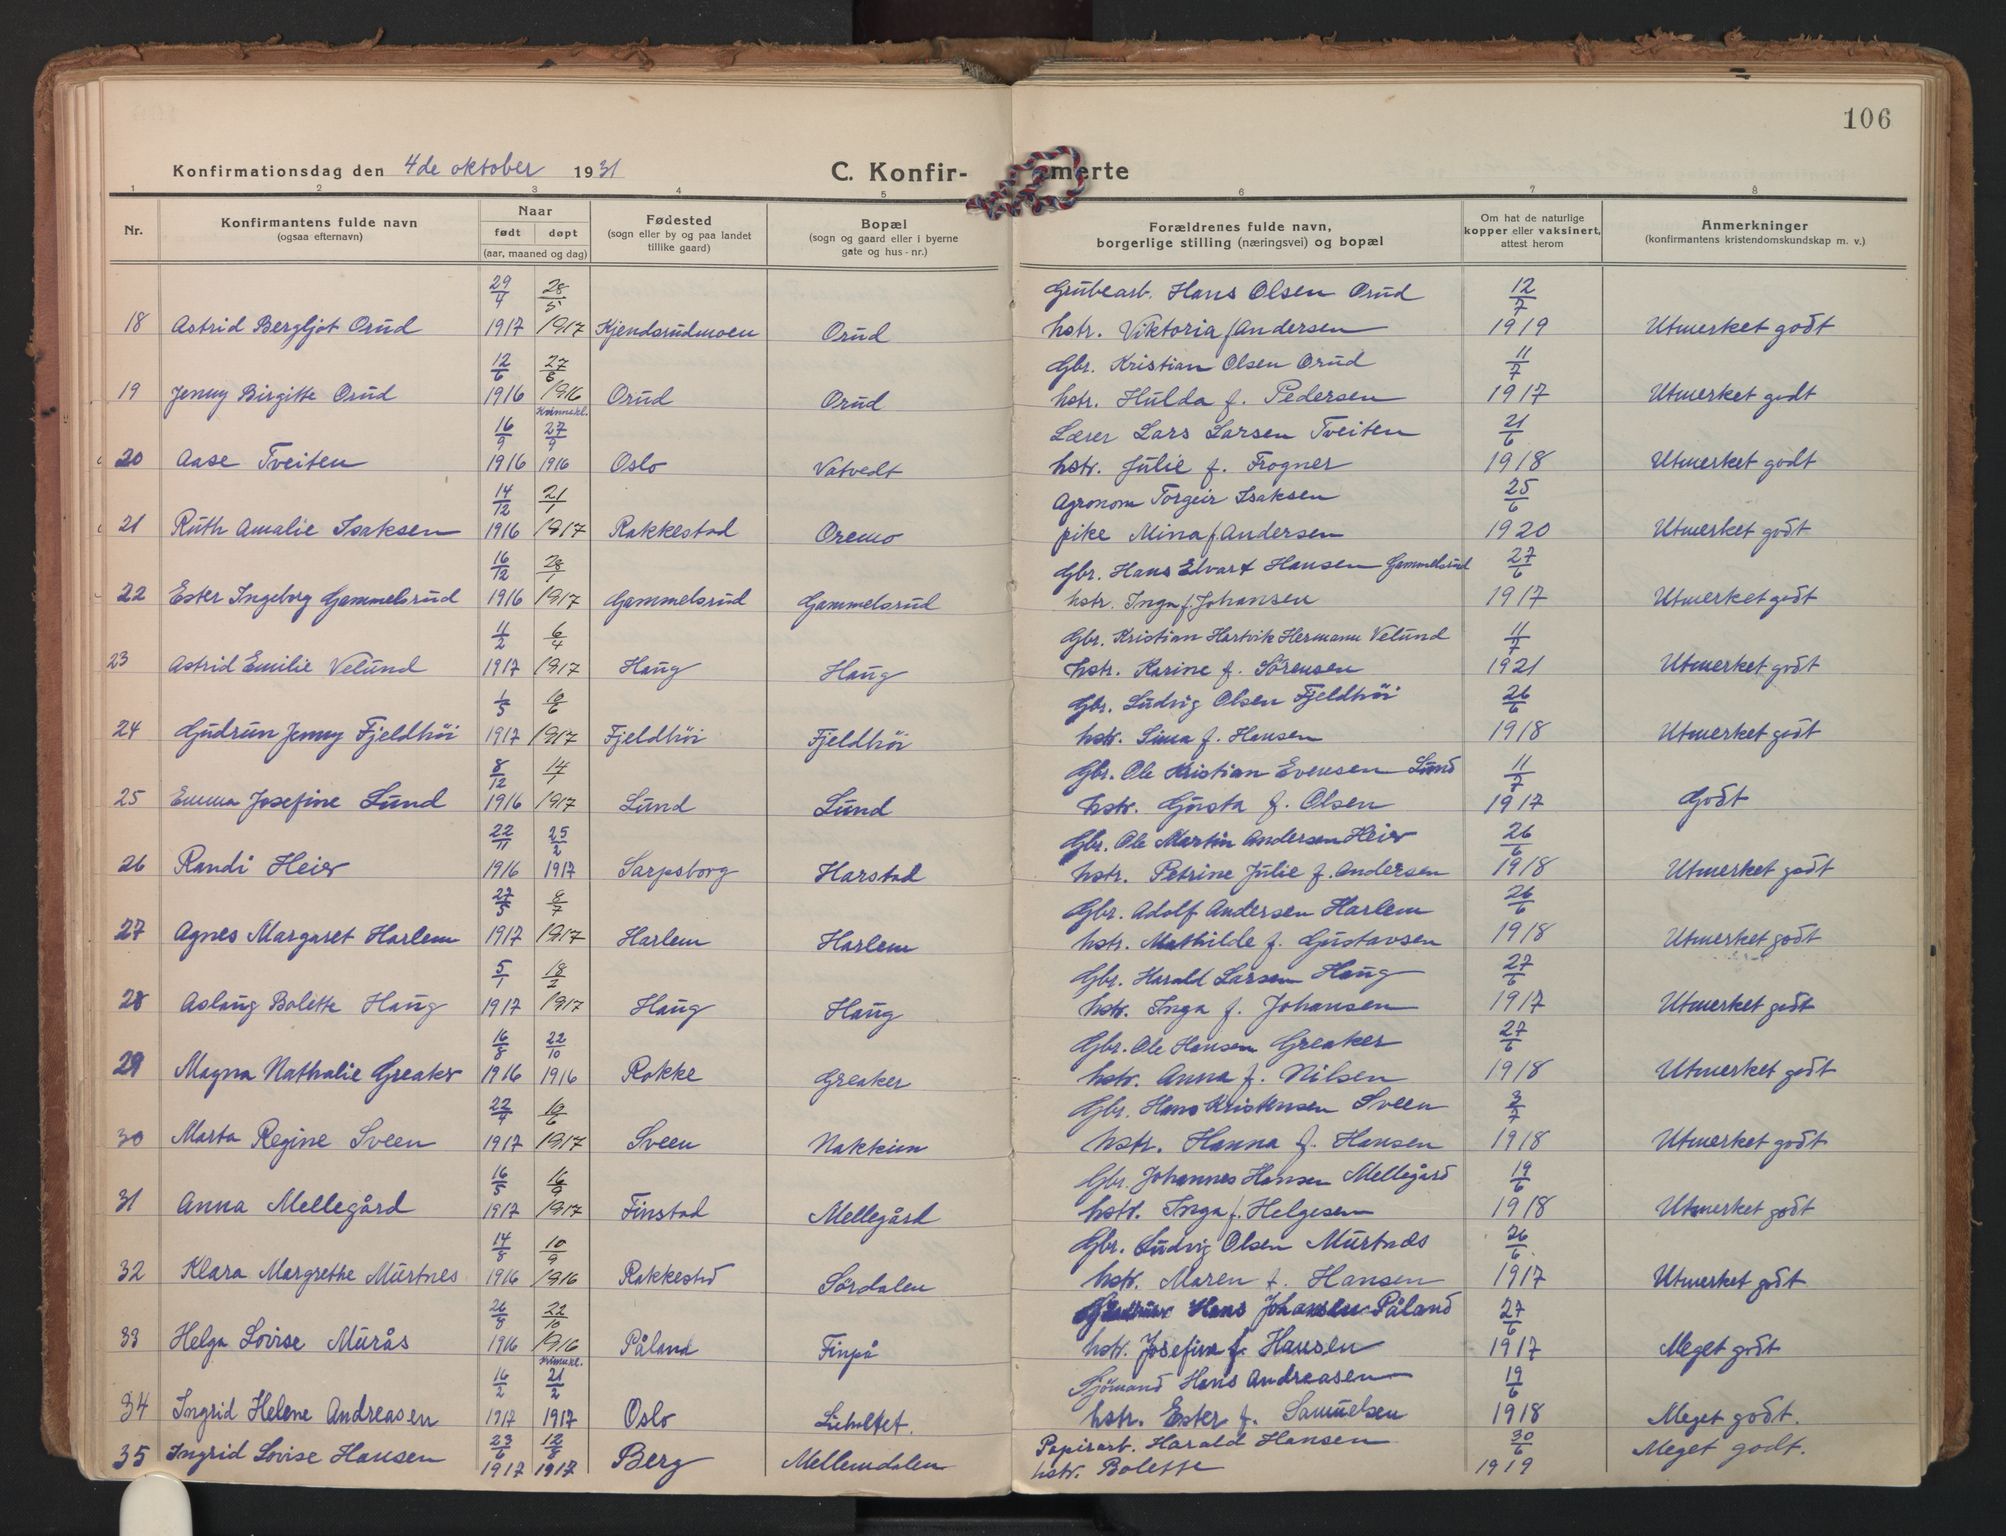 106
Konfirmationsdag den 4de oktober 1931 C. Konfir- merte
1 2 3 4 5 6 7 8
Nr. Konfirmantens fulde navn (ogsaa efternavn) Naar født døpt (aar, maaned og dag) Fødested (sogn eller by og paa landet tillike gaard) Bopæl (sogn og gaard eller i byerne gate og hus-nr.) Forældrenes fulde navn, borgerlige stilling (næringsvei) og bopæl Om hat de naturlige kopper eller vaksinert, attest herom Anmerkninger (konfirmantens kristendomskundskap m. v.)
29/4 28/5 Grubearb. Hans Olsen Orud 12/7
18 Astrid Bergljot Orud 1917 1917 Kjendsrudmoen Orud hstr. Viktoria f Andersen 1919 Utmerket godt
12/6 27/6 Gbr. Kristian Olsen Orud 11/7
19 Jenny Birgitte Orud 1916 1916 Orud Orud hstr. Hulda f. Pedersen 1917 Utmerket godt
Kvinnekl.
16/9 27/9 Lærer Lars Larsen Tveiten 21/6
20 Aase Tveiten 1916 1916 Oslo Vatvedt hstr. Julie f. Frogner 1918 Utmerket godt
14/12 21/1 Agronom Torgeir Isaksen 25/6
21 Ruth Amalie Isaksen 1916 1917 Rakkestad Oremo pike Mina f Andersen 1920 Utmerket godt
16/12 28/1 Gbr. Hans Elvart Hansen Gammelsrud 27/6
22 Ester Ingeborg Gammelsrud 1916 1917 Gammelsrud Gammelsrud hstr. Inga f. Johansen 1917 Utmerket godt
11/2 6/4 Gbr. Kristian Hartvik Hermann Velund 11/7
23 Astrid Emilie Velund 1917 1917 Haug Haug hstr. Karine f. Sørensen 1921 Utmerket godt
1/5 10/6 Gbr. Ludvig Olsen Fjeldhöi 26/6
24 Gudrun Jenny Fjeldhöi 1917 1917 Fjeldhöi Fjeldhöi hstr. Sina f. Hansen 1918 Utmerket godt
8/12 14/1 Gbr. Ole Kristian Evensen Lund 11/7
25 Emma Josefine Lund 1916 1917 Lund Lund hstr. Gusta f. Olsen 1917 Godt
22/11 25/2 Gbr. Ole Martin Andersen Heier 26/6
26 Randi Heier 1916 1917 Sarpsborg Harstad hstr. Petrine Julie f. Andersen 1918 Utmerket godt
27/5 8/7 Gbr. Adolf Andersen Harlem 26/6
27 Agnes Margaret Harlem 1917 1917 Harlem Harlem hstr. Mathilde f. Gustavsen 1918 Utmerket godt
5/1 18/2 Gbr. Harald Larsen Haug 27/6
28 Aslaug Bolette Haug 1917 1917 Haug Haug hstr. Inga f. Johansen 1917 Utmerket godt
16/8 22/10 Gbr. Ole Hansen Greaker 27/6
29 Magna Nathalie Greaker 1916 1916 Rokke Greaker hstr. Anna f. Nilsen 1918 Utmerket godt
22/4 10/6 Gbr. Hans Kristensen Sveen 3/7
30 Marta Regine Sveen 1917 1917 Sveen Nakkim hstr. Hanna f. Hansen 1918 Utmerket godt
16/5 16/9 Gbr. Johannes Hansen Mellegård 19/6
31 Anna Mellegård 1917 1917 Finstad Mellegård hstr. Inga f. Helgesen 1918 Utmerket godt
14/8 10/9 Gbr. Ludvig Olsen Murtnes 26/6
32 Klara Margrethe Murtnes 1916 1916 Rakkestad Sördalen hstr. Maren f. Hansen 1917 Utmerket godt
26/8 22/10 Hans Johansen Påland 27/6
33 Helga Lovise Murås 1916 1916 Påland Finpå hstr. Josefina f. Hansen 1917 Meget godt
kvinnekl.
16/2 21/2 Sjömand Hans Andreasen 19/6
34 Ingrid Helene Andreasen 1917 1917 Oslo hstr. Ester f. Samuelsen 1918 Meget godt.
23/6 12/8 Papirarb. Harald Hansen 30/6
35 Ingrid Lovise Hansen 1917 1917 Berg Mellemdalen hstr. Bolette 1919 Meget godt.